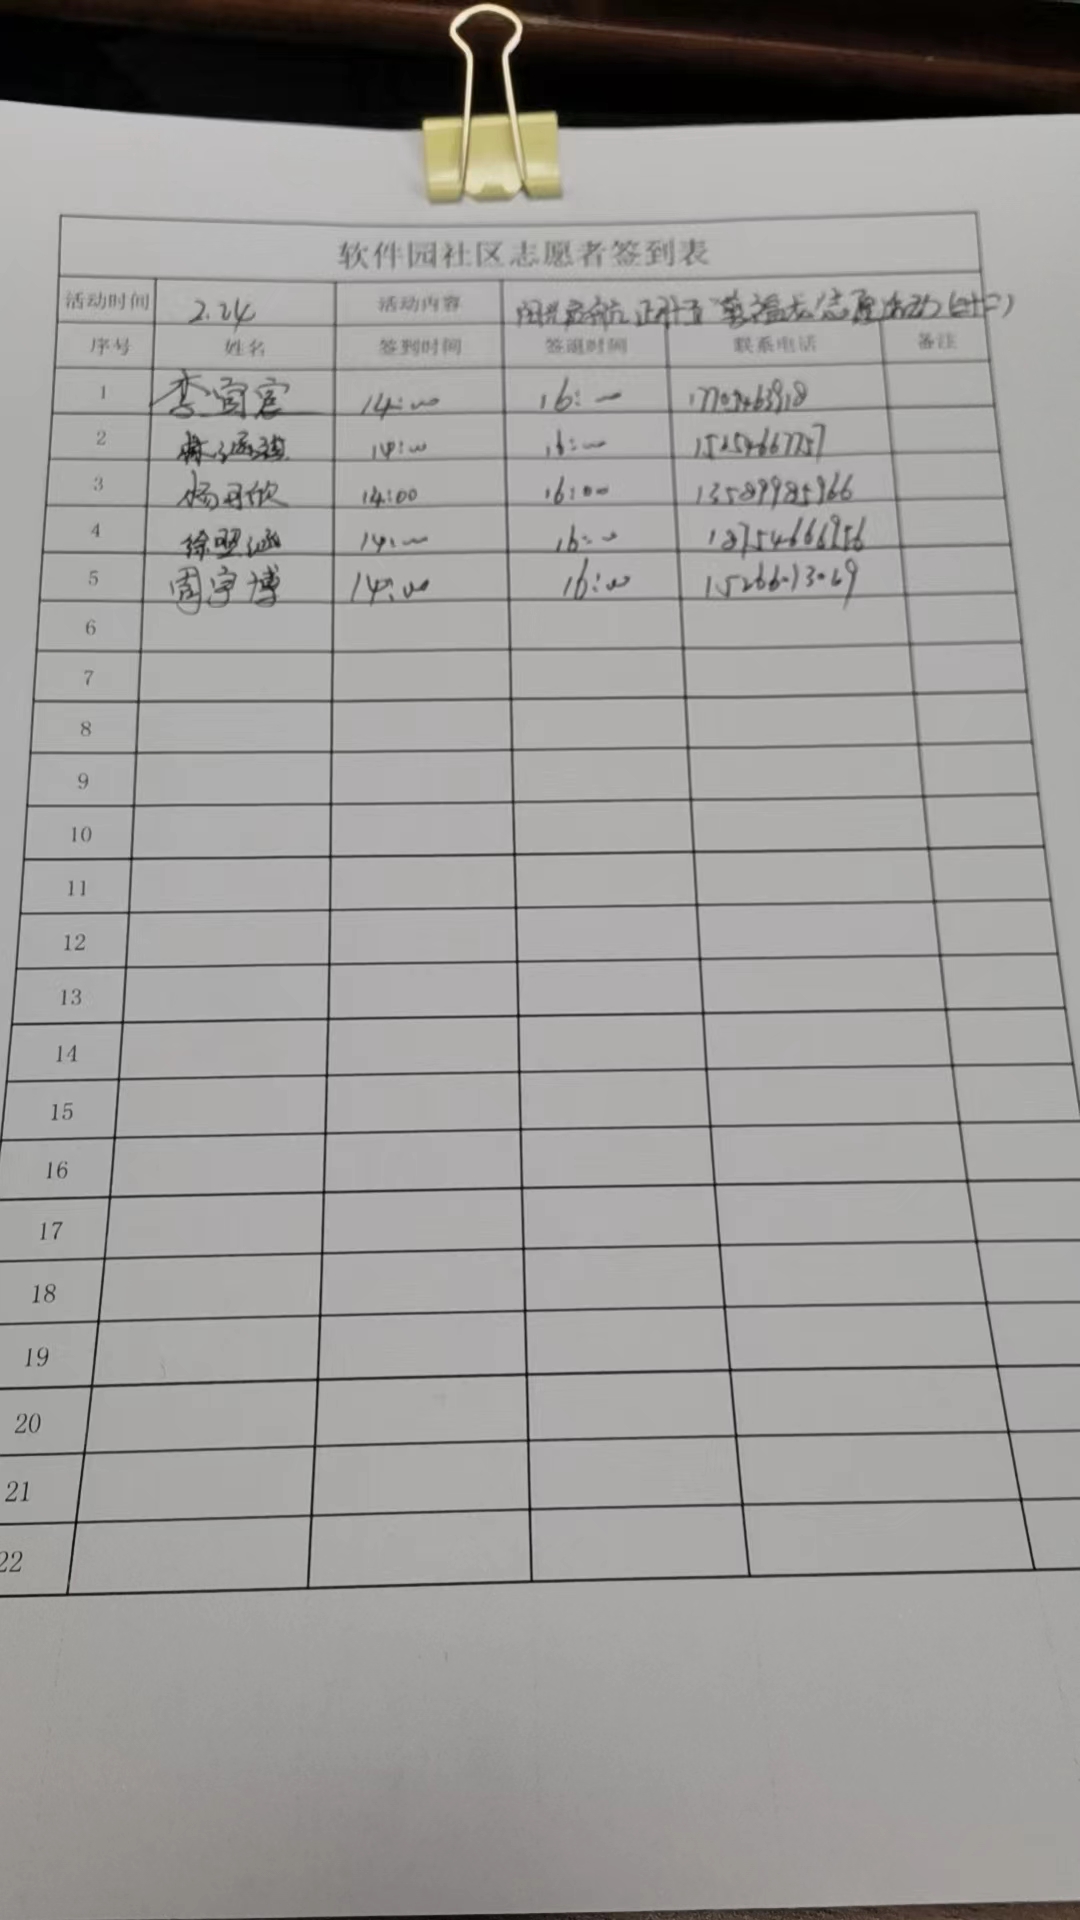 软件园社区志愿者签到表
活动时间 2.24 活动内容 志愿活动(二十二)
序号 姓名 签到时间 签退时间 联系电话 备注
1 李宜宸 14:00 16:00
2 14:00 16:00 15254667757
3 杨丹欣 14:00 16:00 13589985966
4 徐熙涵 14:00 16:00 18754666956
5 周宇博 14:00 16:00
6
7
8
9
10
11
12
13
14
15
16
17
18
19
20
21
22